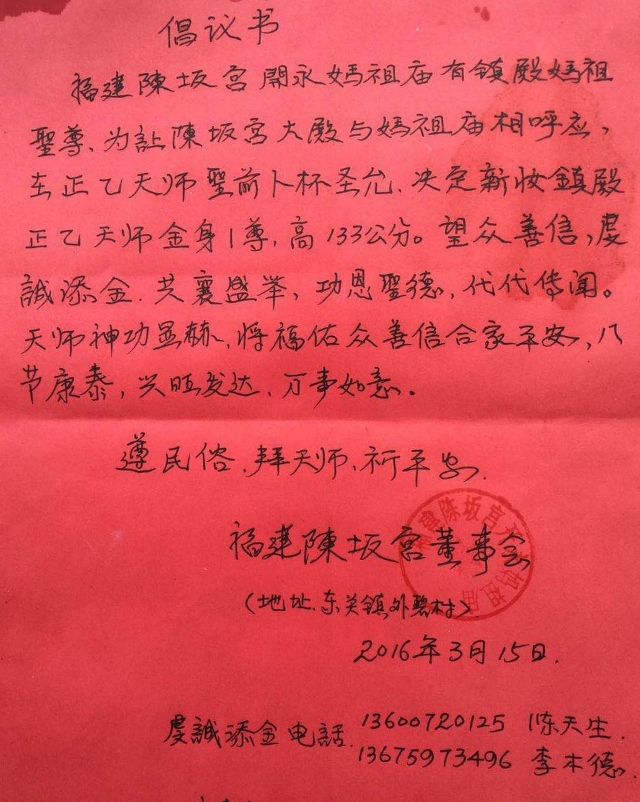 倡议书
福建陳坂宮開永媽祖庙有鎮殿媽祖
聖尊、为訨陳坂宮大殿与媽祖庙相呼应,
在正乙天师聖前卜杯圣允、决定新妆鎮殿
正乙天师金身1尊,高133公分。望众善信,虔
誠添金、共襄盛举,功恩聖德,代代传闻。
天师神功显赫,将福佑众善信合家平安,八
节康泰,兴旺发达,万事如意。
遵民俗、拜天师、祈平安、
福建陳坂宮董事会
(地址、东关镇外碧村)
2016年3月15日.
虔誠添金电話 13600720125 陈天生
13675973496 李木德
福建陈坂宫 妈祖庙